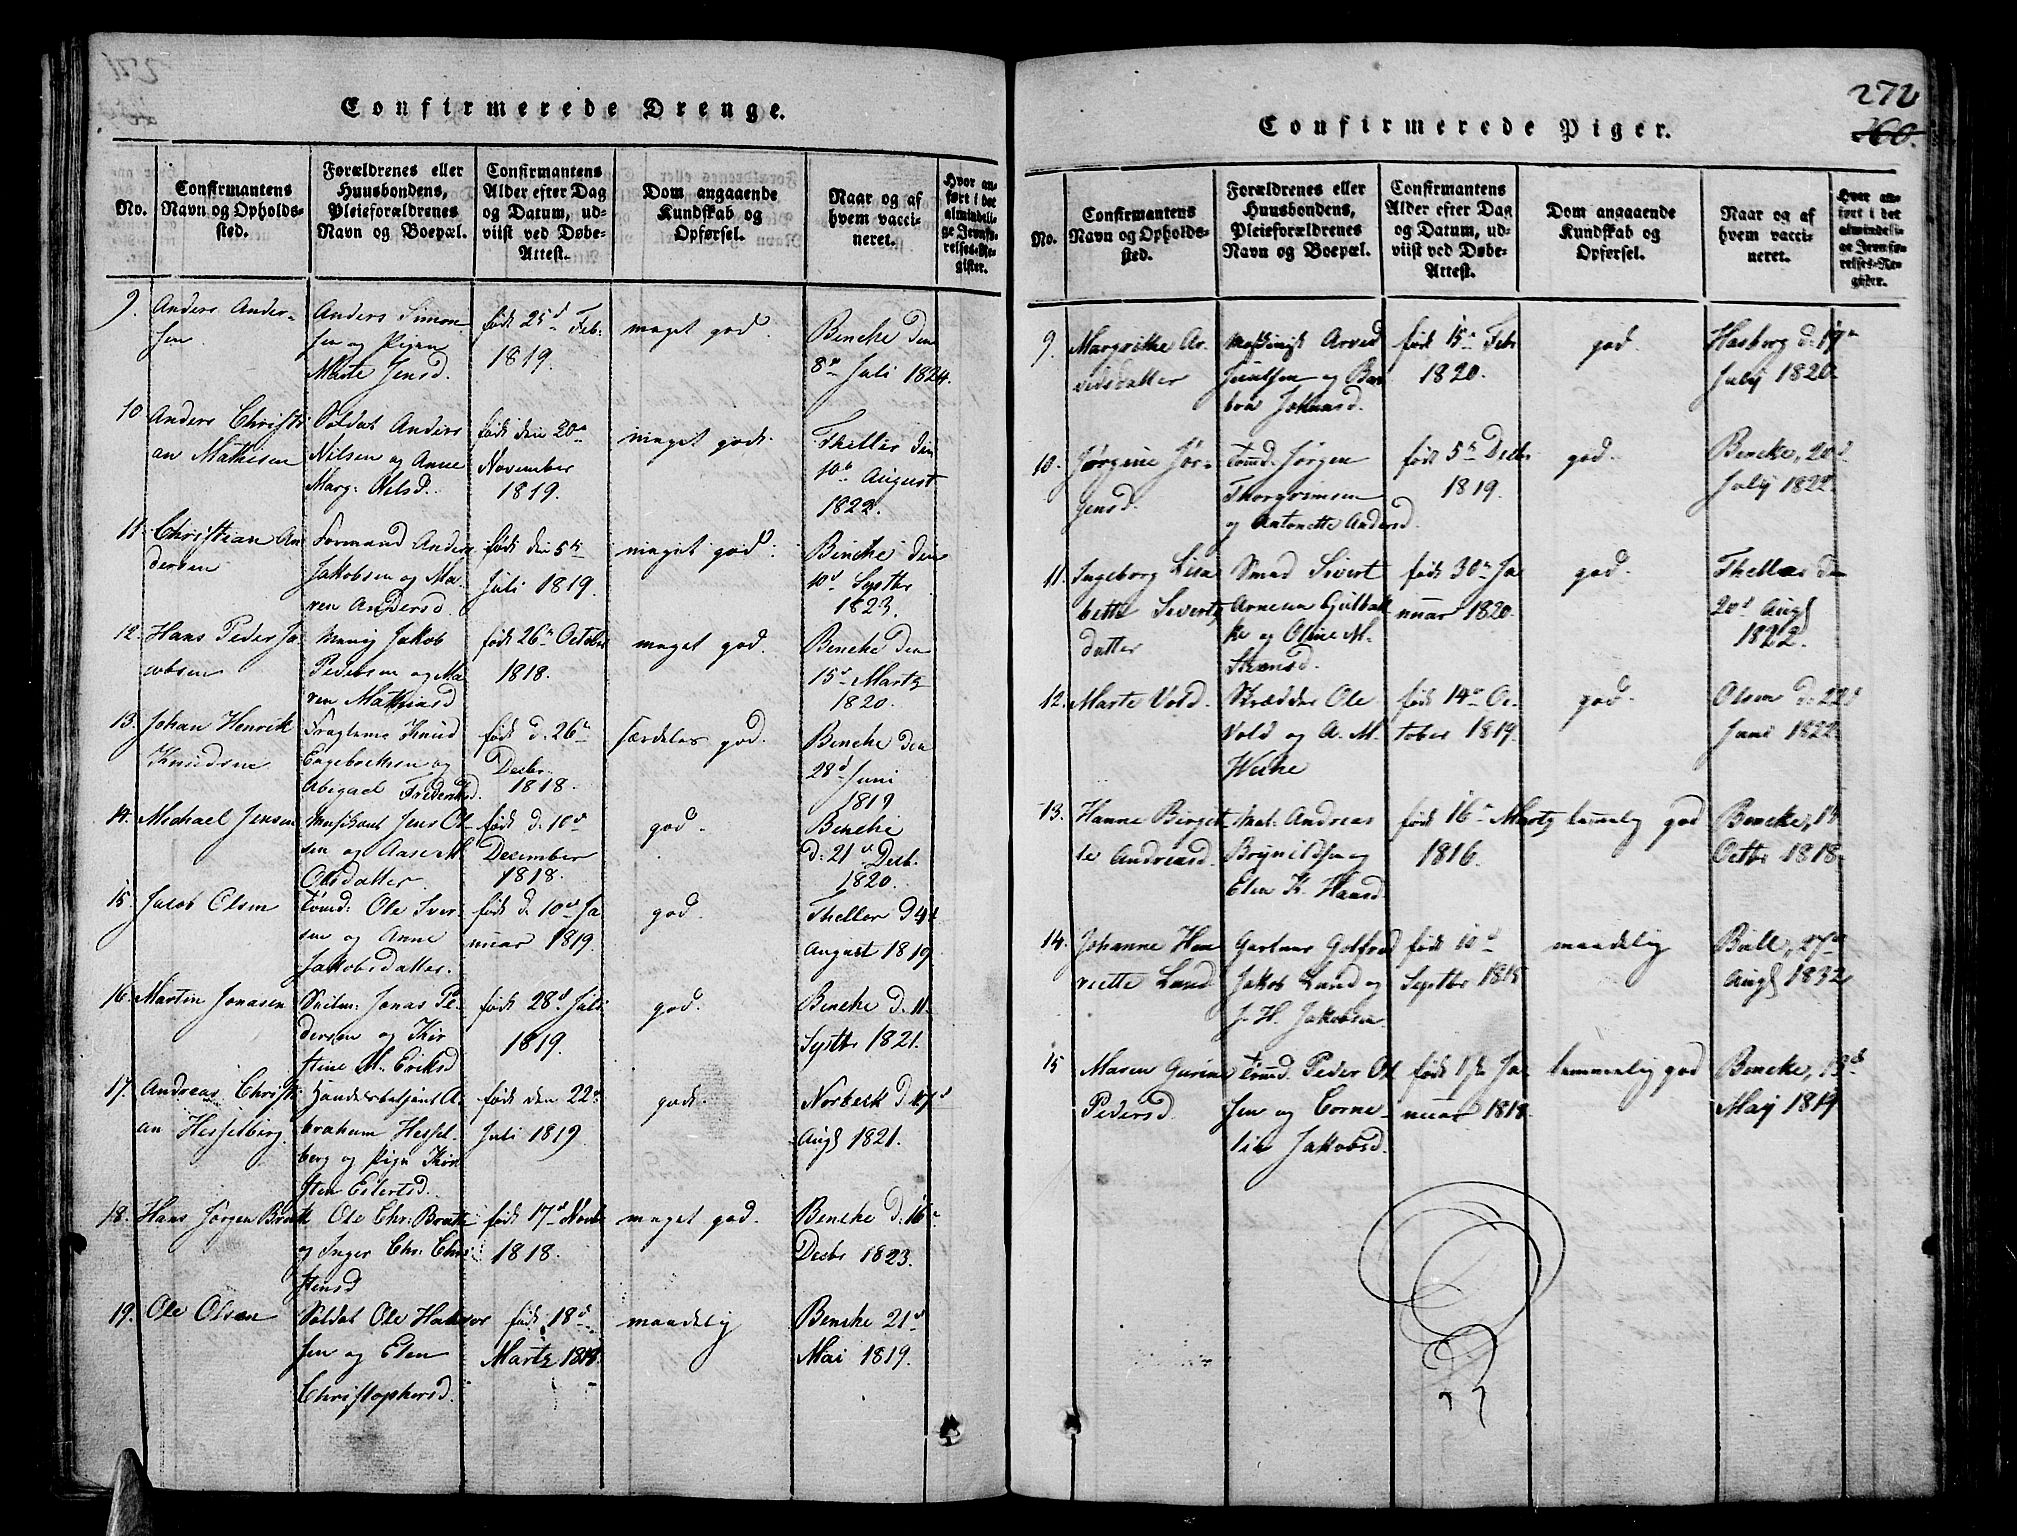 Confirmerede Drenge.
No.
Confirmantens
Navn og Opholds-
sted.
Forældrenes eller
Huusbondens,
Pleieforældrenes
Navn og Boepæl.
Confirmantens
Alder efter Dag
og Datum, ud-
viist ved Døbe-
Attest.
Dom angaaende
Kundskab og
Opførsel.
Naar og af
hvem vacci-
neret.
Hvor an-
ført i det
almindeli-
ge Jevnfø-
relses-Re-
gister.
9.
Anders Ander-
sen
Anders Simon
sen og Pigen
Marte Jensd.
født 25d Feb:
1819.
meget god.
Benche den
8de Juli 1824.
10
Anders Christi
an Mathisen
Soldat Anders
Nilsen og Anne
Marg: Nilsd.
født den 20de
November
1819.
meget godt.
Theller den
10de August
1822.
11.
Christian An
dersen
Formand Anders
Jakobsen og Ma-
ren Andersd.
født den 5te
Juli 1819.
meget god.
Benche den
10d Septbr
1823.
12.
Hans Peder Ja
cobsen
Jakob
Pedersen og Ma
ren Mathiasd
født 26de October
1818.
meget god.
Benche den
15d Martz
1820.
13.
Johan Henrik
Knudsen
Knud
Engebretsen og
Abigael Frederiksd.
født d. 26de
Decbr.
1818.
særdeles god.
Benche den
28d Juni
1819
14.
Michael Jensen
Musikant Jens Ol-
sen og Aase M.
Olsdatter.
født d. 10d
December
1818.
god.
Benche
d: 21d Decb.
1820.
15.
Jacob Olsen
Tømd: Ole Iver-
sen og Anne
Jakobsdatter.
født d. 10de Ja
nuar 1819.
god.
Theller d 4d
August 1819.
16.
Martin Jonasen
Jonas Pe-
dersen og Kir
stine M. Eriksd
født 28d Juli
1819.
god.
Benche d. 11.
Septbr 1821.
17.
Andreas Christi
an Hesselberg.
Handelsbetjent A-
braham Hessel-
berg og Pige Kir
sten Eilertsd.
født den 22de
Juli 1819
godt.
Norbeck d. 17d
Augs 1821.
18.
Hans Jørgen
Ole Chr:
og Inger Chr: Chri
stensd
født 17d Novbr
1818.
meget god.
Benche d: 16de
Decbr 1823.
19.
Ole Olsen
Soldat Ole Halvor
sen og Elen
Christophersd.
født 18d
Martz
maadelig
Benche 21d
Mai 1819.
272
260.
Confirmerede Piger.
No.
Confirmantens
Navn og Opholds-
sted.
Forældrenes eller
Huusbondens,
Pleieforældrenes
Navn og Boepæl.
Confirmantens
Alder efter Dag
og Datum, ud-
viist ved Døbe-
Attest.
Dom angaaende
Kundskab og
Opførsel.
Naar og af
hvem vacci-
neret.
Hvor an-
ført i det
almindeli-
ge Jevnfø-
relses-Re-
gister.
9.
Margrethe Ar
vedsdatter
Arved
Juulsen og Bar
bra Johansd.
født 15de Feb
1820.
god.
Hasberg d. 19de
July 1820.
10.
Jørgine Jør-
gensd.
Tømd. Jørgen
Thorgrimsen
og Antonette Andersd.
født 5te Decbr
1819.
god.
Bencke, 20d
July 1822.
11.
Ingeborg Lisa
bette Sivertz
datter
Smed Sivert
Arnesen Gulbak
ke og Oline M.
Steensd.
født 30te Ja
nuar 1820.
god.
Theller den
20d Augs
1822.
12.
Marte Vold.
Skrædder Ole
Vold og A. M.
født 14de Oc-
tober 1819.
god.
Olsen d. 22d
Juni 1822.
13.
Hanne Birgit-
te Andreasd.
Mat. Andreas
Brynildsen og
Elen K. Hansd.
født 16de Martz
1816.
temmelig god
Bencke, 18
Octbr 1818.
14.
Johanne Hen
riette Lund
Gartner Gotfred
Jakob Lund og
J. H. Jakobsen.
født 10d
Septbr
maadelig
Bull, 27de
Augs 1832
15
Maren Gurine
Pedersd.
Tømd. Peder Ol
sen og Corne-
lia Jakobsd.
født 1ste Ja
nuar 1818.
temmelig god
Bencke, 13d
May 1819